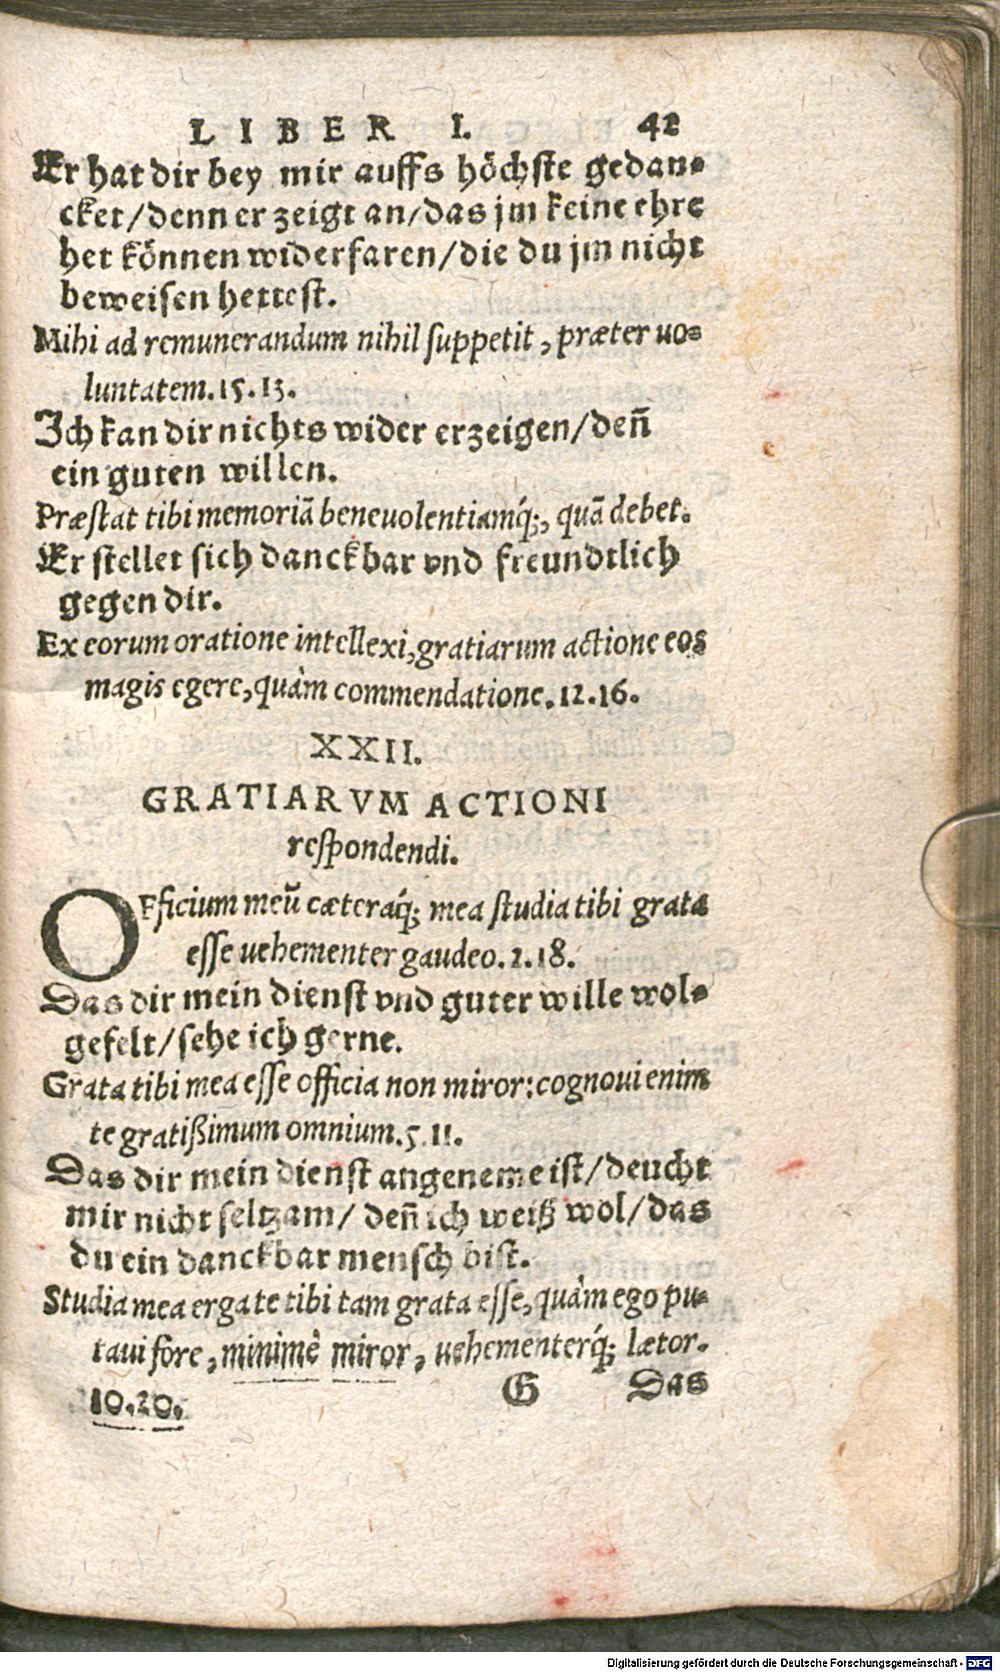 LIBER I. 42
Er hat dir bey mir auffs höchste gedan-
cket/denn er zeigt an/das jm keine ehre
het können widerfaren/die du jm nicht
beweisen hettest.
Mihi ad remunerandum nihil suppetit, præter uo-
luntatem. 15. 13.
Ich kan dir nichts wider erzeigen/deñ
ein guten willen.
Præstat tibi memoriã beneuolentiamq́;, quã debet.
Er stellet sich danckbar vnd freundtlich
gegen dir.
Ex eorum oratione intellexi, gratiarum actione eos
magis egere, quàm commendatione. 12. 16.
XXII.
GRATIARVM ACTIONI
respondendi.
OFficium meũ cæteraq́; mea studia tibi grata
esse uehementer gaudeo. 2. 18.
Das dir mein dienst vnd guter wille wol-
gefelt/sehe ich gerne.
Grata tibi mea esse officia non miror: cognoui enim
te gratißimum omnium. 5. 11.
Das dir mein dienst angeneme ist/deucht
mir nicht seltzam/ deñ ich weiß wol/das
du ein danckbar mensch bist.
Studia mea erga te tibi tam grata esse, quàm ego pu-
taui fore, minimè miror, uehementerq́; lætor.
10. 20. G Das
Digitalisierung gefördert durch die Deutsche Forschungsgemeinschaft - DFG